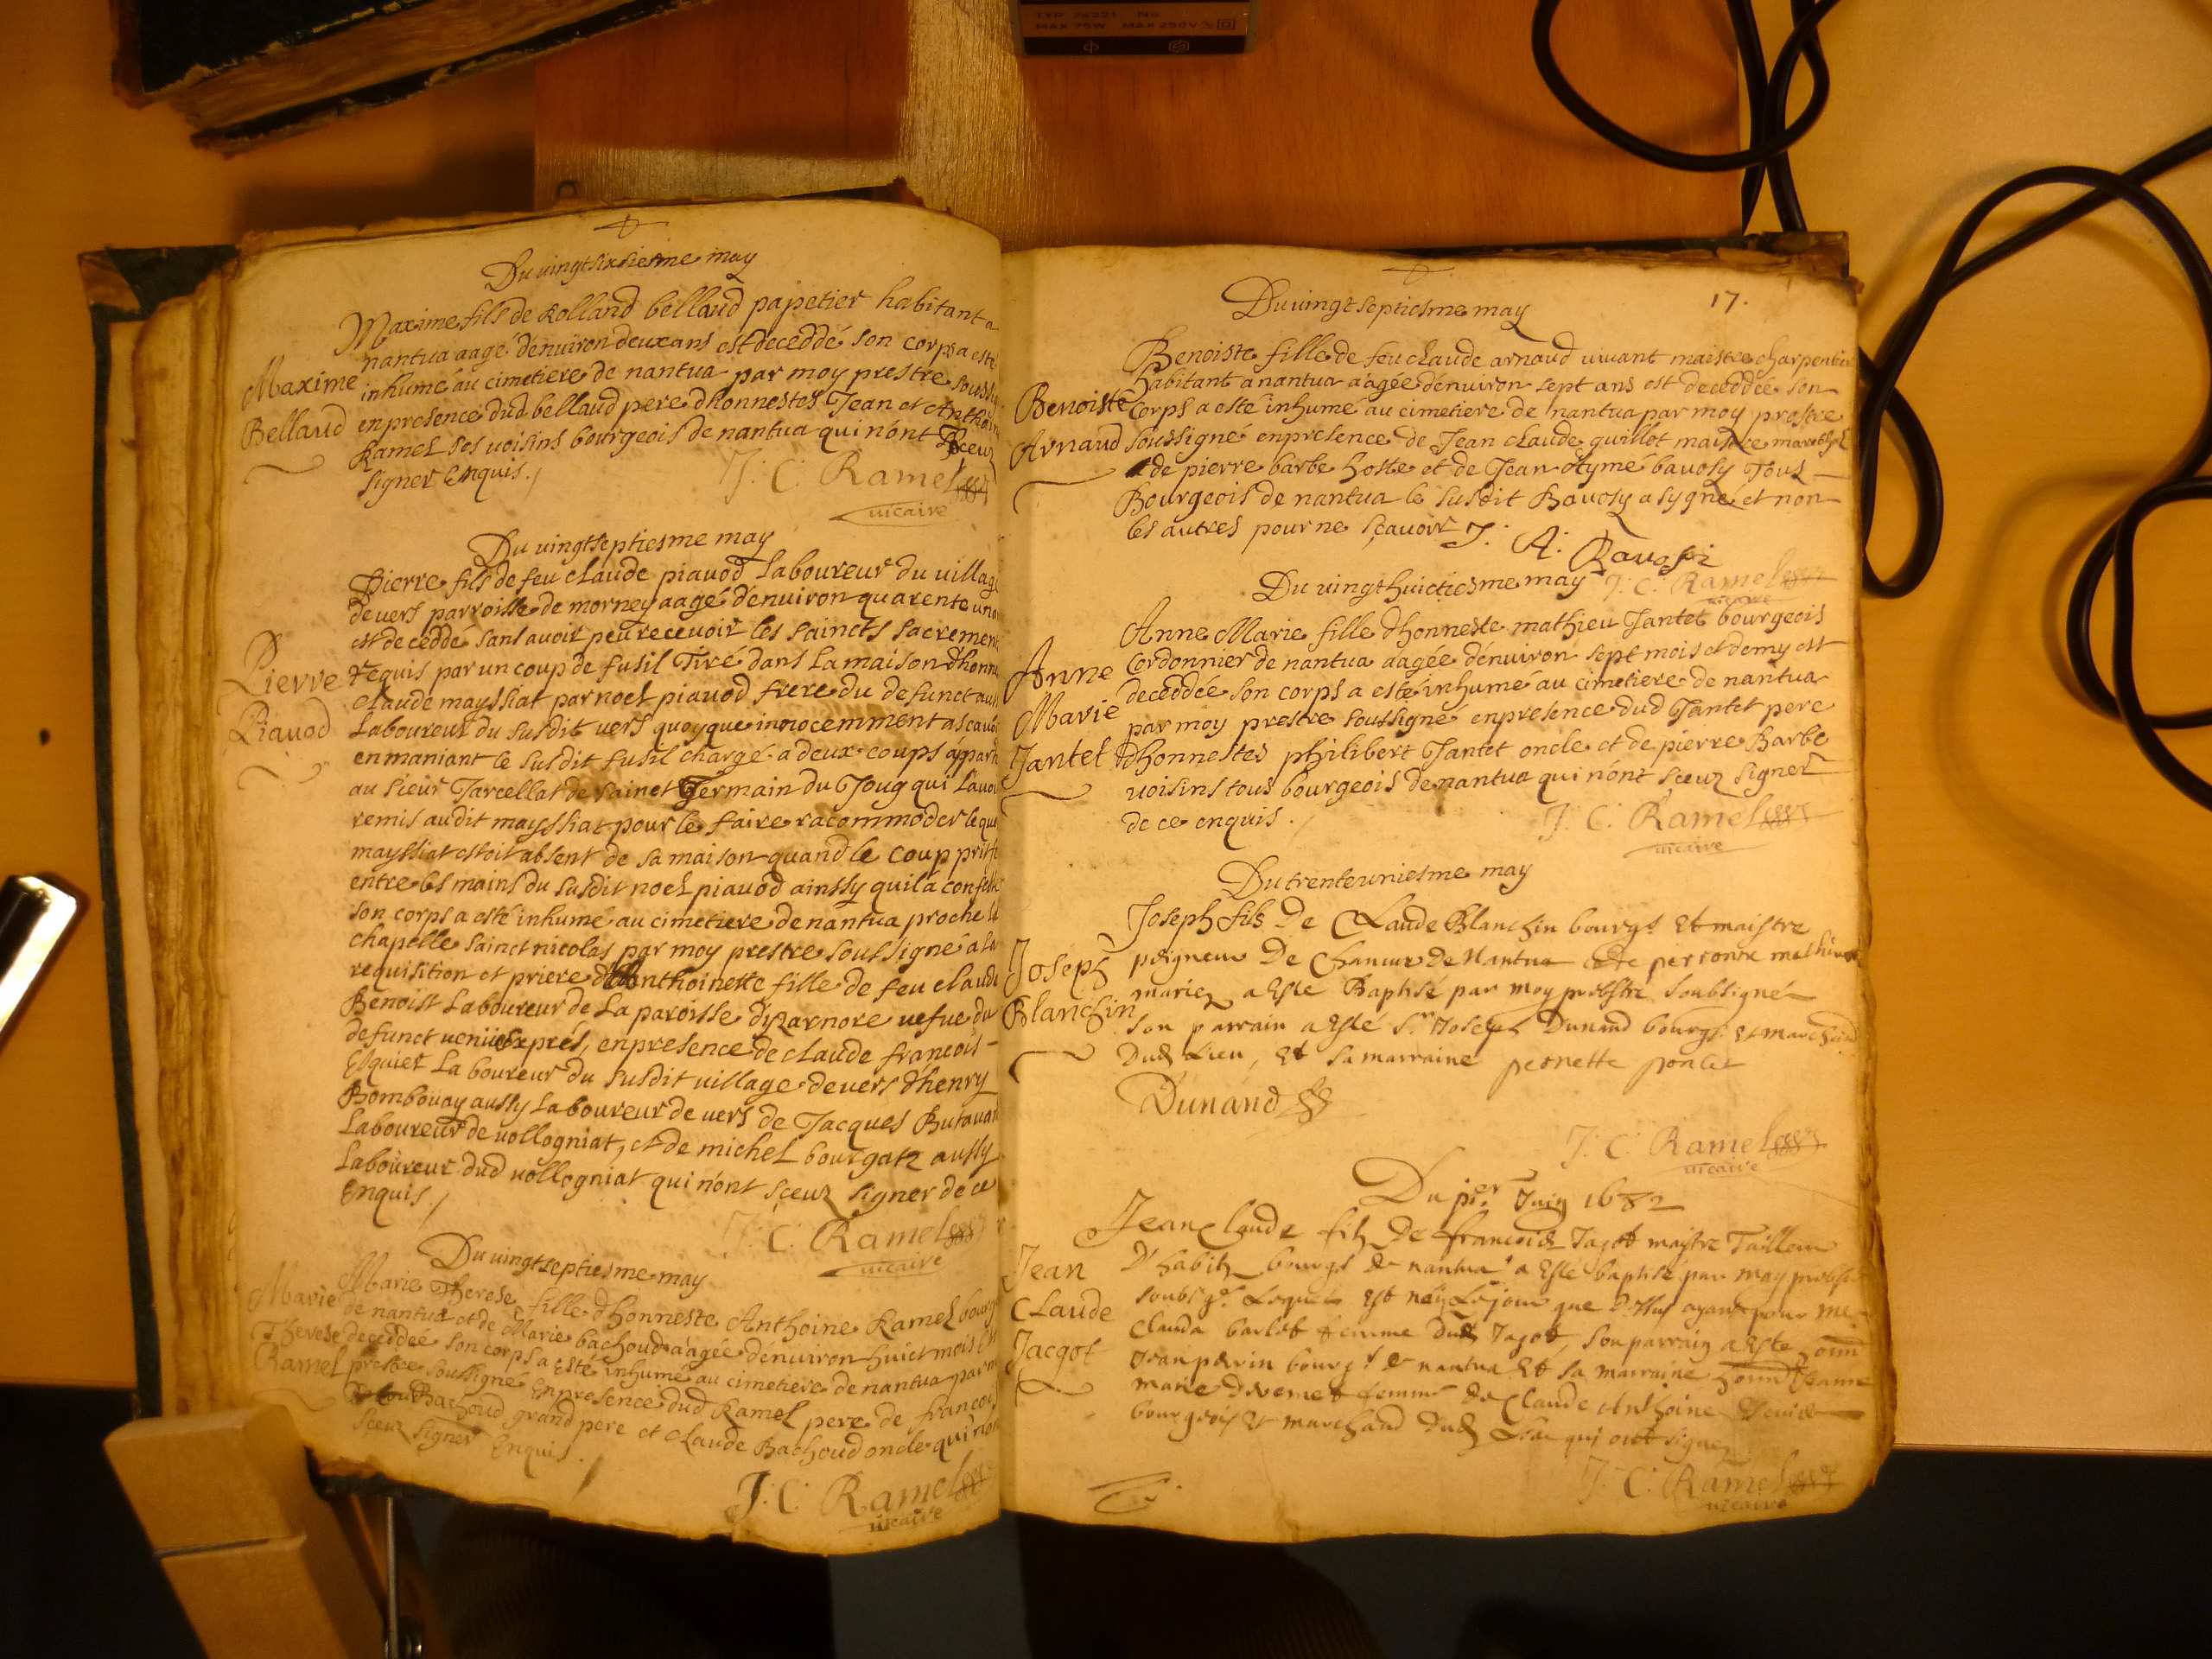 TYP 7x221 No
MAX 70W MAX 250V
Du vingt sixiesme may
Maxime fils de Rolland bellaud papetier habitant a
nantua aagé d'enuiron deux ans est deceddé son corps a esté
inhumé au cimetiere de nantua par moy prestre soussig
en presence dud bellaud pere d'honnestes Jean et Anthoin
Ramel ses uoisins bourgeois de nantua qui n'ont sceuz
signer enquis./
Maxime
Bellaud
J: C: Ramel
uicaire
Du uingtseptiesme may
Pierre fils de feu claude piauod laboureur du village
deuers parroisse de morney aagé d'enuiron quarente un a
est deceddé sans auoir peu receuoir les saincts sacremen
requis par un coup de fusil Tiré dans la maison d'honne
claude mayssiat par noel piauod frere du defunct auss
Laboureur du susdit uers quoyque innocemment a scauoi
en maniant le susdit fusil chargé a deux coups apparte
au sieur Jarcellat de sainct Germain du Joug qui l'auoi
remis audit mayssiat pour le faire racommoder lequel
mayssiat estoit absent de sa maison quand le coup prit fe
entre les mains du susdit noel piauod ainssy quil a confesse
son corps a esté inhumé au cimetiere de nantua proche la
chapelle sainct nicolas par moy prestre soussigné a la
requisition et priere d'Anthoinette fille de feu claude
Benoist Laboureur de La paroisse d'yzarnore uefue du
defunct uenüe exprés, en presence de claude francois
Esquier Laboureur du susdit uillage deuers d'henry
Bombouay aussy Laboureur de uers de Jacques Butauan
Laboureur de uollogniat, et de michel bourgatz aussy
Laboureur dud uollogniat qui n'ont sceuz signer de ce
Enquis./
Pierre
Piauod
J: C: Ramel
uicaire
Du uingtseptiesme may
Marie Therese fille d'honneste Anthoine Ramel bourg
de nantua et de Marie bachoud aagée d'enuiron huict mois est
deceddeé son corps a Esté inhumé au cimetiere de nantua par moy
prestre soussigné En presence dud Ramel pere de francois
Bachoud grand pere et claude Bachoud oncle qui n'ont
sceuz signer Enquis.
Marie
Therese
Ramel
J: C: Ramel
uicaire
17.
Du uingt septiesme may
Benoiste fille de feu claude arnaud uiuant maistre charpentier
habitant a nantua aagée d'enuiron sept ans est deceddée son
Corps a esté inhumé au cimetiere de nantua par moy prestre
soussigné en presence de Jean claude guillot maistre mareschl
de pierre barbe hoste et de Jean Aymé bauosy Tous
Bourgeois de nantua le susdit Bauosy a sygné et non
les autres pour ne sçauoir
Benoiste
Arnaud
J. A. Bauosi
J: C: Ramel
uicaire
Du uingt huictiesme may
Anne Marie fille d'honneste mathieu Jantet bourgeois
Cordonnier de nantua aagée d'enuiron sept mois et demy est
deceddée son corps a esté inhumé au cimetiere de nantua
par moy prestre soussigné en presence dud Jantet pere
d'honnestes philibert Jantet oncle et de pierre Barbe
uoisins tous bourgeois de nantua qui n'ont sceuz signer
de ce enquis.
Anne
Marie
Jantet
J: C: Ramel
uicaire
Du trente uniesme may
Joseph fils De Claude Blanchin bourgs Et maistre
peigneur De Chanure de Nantua et de perronne mathieu
mariez a Esté Baptisé par moy prebstre soubsigné
son parrain a Esté Sr Joseph Dunand bourgs Et marchand
Dud Lieu, Et sa marraine pernette poncet
Joseph
Blanchin
Dunand
J: C: Ramel
uicaire
Du pier Juin 1682
Jean Claude filz De francois Jagot maistre Tailleur
D'habitz bourgs de nantua a Esté baptisé par moy prebstre
soubsgé Lequel Est néz Le jour que Dessus ayant pour mere
Clauda barlet femme dud Jagot, son parrain a Este honn
Jean perrin bourgs de nantua Et sa marraine honn Jeanne
marie femme De Claude Anthoine
bourgeois Et marchand dud Lieu qui ont signez
Jean
Claude
Jacgot
J: C: Ramel
uicaire